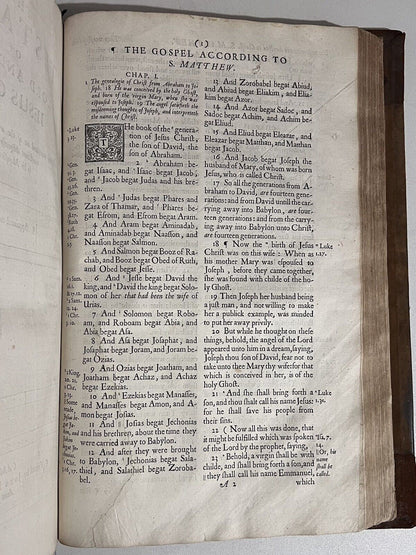 (1)
¶ THE GOSPEL ACCORDING TO
S. MATTHEW.
CHAP. I.
1 The genealogie of Christ from Abraham to Jo-
seph. 18 He was conceived by the holy Ghost,
and born of the virgin Mary, when she was
espoused to Joseph. 19 The angel satisfieth the
misdeeming thoughts of Joseph, and interpreteth
the names of Christ.
THe book of the * genera-
tion of Jesus Christ,
the son of David, the
son of Abraham.
2 * Abraham be-
gat Isaac, and * Isaac begat Jacob,
and * Jacob begat Judas and his bre-
thren.
3 And * Judas begat Phares and
Zara of Thamar, and * Phares be-
gat Esrom, and Esrom begat Aram.
4 And Aram begat Aminadab, and
Aminadab begat Naasson, and
Naasson begat Salmon.
5 And Salmon begat Booz of Ra-
chab, and Booz begat Obed of Ruth,
and Obed begat Jesse.
6 And * Jesse begat David the
king, and * David the king begat Solo-
mon of her that had been the wife of
Urias.
7 And * Solomon begat Ro-
boam, and Roboam begat Abia, and
Abia begat Asa.
8 And Asa begat Josaphat, and
Josaphat begat Joram, and Joram be-
gat Ozias.
9 And Ozias begat Joatham, and
Joatham begat Achaz, and Achaz
begat Ezekias.
10 And * Ezekias begat Manasses,
and Manasses begat Amon, and A-
mon begat Josias.
11 And Josias begat Jechonias
and his brethren, about the time they
were carried away to Babylon.
12 And after they were brought
to Babylon, * Jechonias begat Sala-
thiel, and Salathiel begat Zoroba-
bel.
* Luke
3. 23.
13 And Zorobabel begat Abiud,
and Abiud begat Eliakim, and Elia-
kim begat Azor.
14 And Azor begat Sadoc, and
Sadoc begat Achim, and Achim be-
gat Eliud.
15 And Eliud begat Eleazar, and
Eleazar begat Matthan, and Matthan
begat Jacob.
16 And Jacob begat Joseph the
husband of Mary, of whom was born
Jesus, who is called Christ.
17 So all the generations from A-
braham to David, are fourteen gene-
rations: and from David untill the car-
rying away into Babylon, are fourteen
generations: and from the carry-
ing away into Babylon unto Christ,
are fourteen generations.
18 ¶ Now the * birth of Jesus
Christ was on this wise: When as
his mother Mary was espoused to
Joseph, before they came together,
she was found with childe of the ho-
ly Ghost.
19 Then Joseph her husband being
a just man, and not willing to make
her a publick example, was minded
to put her away privily.
20 But while he thought on these
things, behold, the angel of the Lord
appeared unto him in a dream, saying,
Joseph thou son of David, fear not to
take unto thee Mary thy wife: for that
which is conceived in her, is of the
holy Ghost.
21 * And she shall bring forth a
son, and thou shalt call his name Jesus:
for he shall save his people from
their sins.
22 (Now all this was done, that
it might be fulfilled which was spoken
of the Lord by the prophet, saying,
23 * Behold, a virgin shall be with
childe, and shall bring forth a son, and
they shall call his name Emmanuel,
* Luke
1. 27.
* Luke
1. 31.
* Isa. 7.
14.
|| Or, his
name
shall be
called.
A 2
which